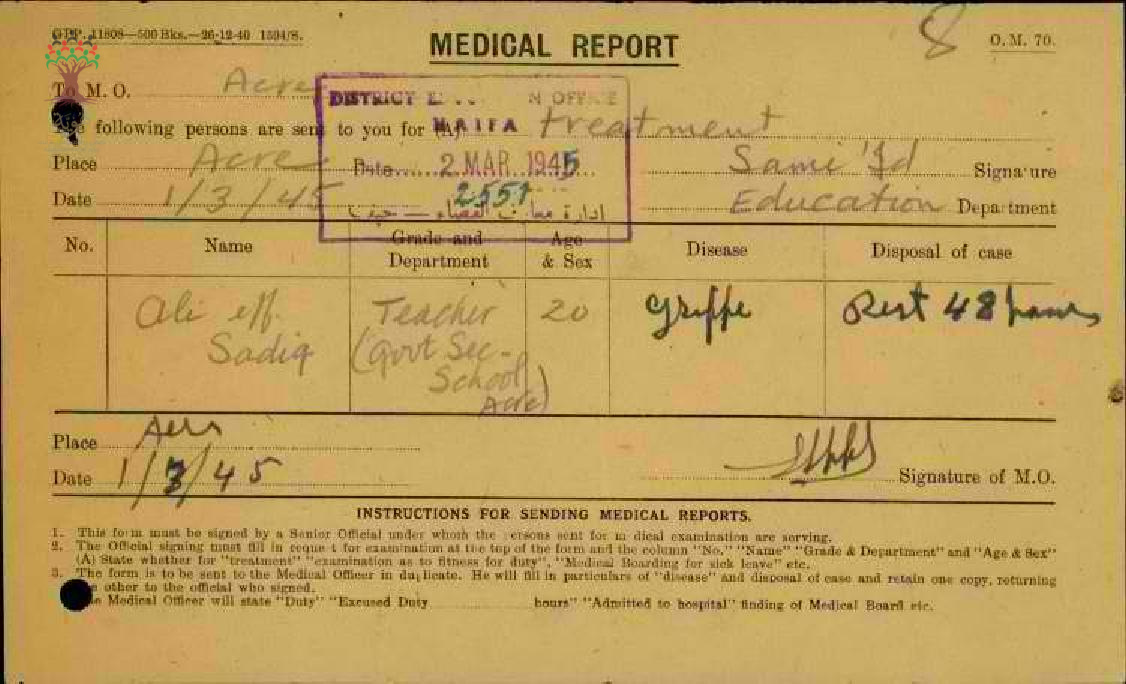 G.P.P. 11808—500 Bks.—26-12-40 1504/S.
8
O. M. 70.
MEDICAL REPORT
To M. O. Acre
DISTRICT E... N OFFICE
HAIFA
The following persons are sent to you for (A) treatment
Place Acre
Date 2 MAR 1945
Sami 'Id Signature
Date 1/3/45
2551
Education Department
ادارة معارف اللواء — حيفا
No. Name Grade and Department Age & Sex Disease Disposal of case
Ali eff. Sadiq Teacher (Govt Sec- School Acre) 20 Grippe Rest 48 hours
Place Acre
Date 1/3/45
Signature of M.O.
INSTRUCTIONS FOR SENDING MEDICAL REPORTS.
1. This form must be signed by a Senior Official under whom the persons sent for m dical examination are serving.
2. The Official signing must fill in reque t for examination at the top of the form and the column "No." "Name" "Grade & Department" and "Age & Sex"
(A) State whether for "treatment" "examination as to fitness for duty", "Medical Boarding for sick leave" etc.
3. The form is to be sent to the Medical Officer in duplicate. He will fill in particulars of "disease" and disposal of case and retain one copy, returning
the other to the official who signed.
The Medical Officer will state "Duty" "Excused Duty ............ hours" "Admitted to hospital" finding of Medical Board etc.